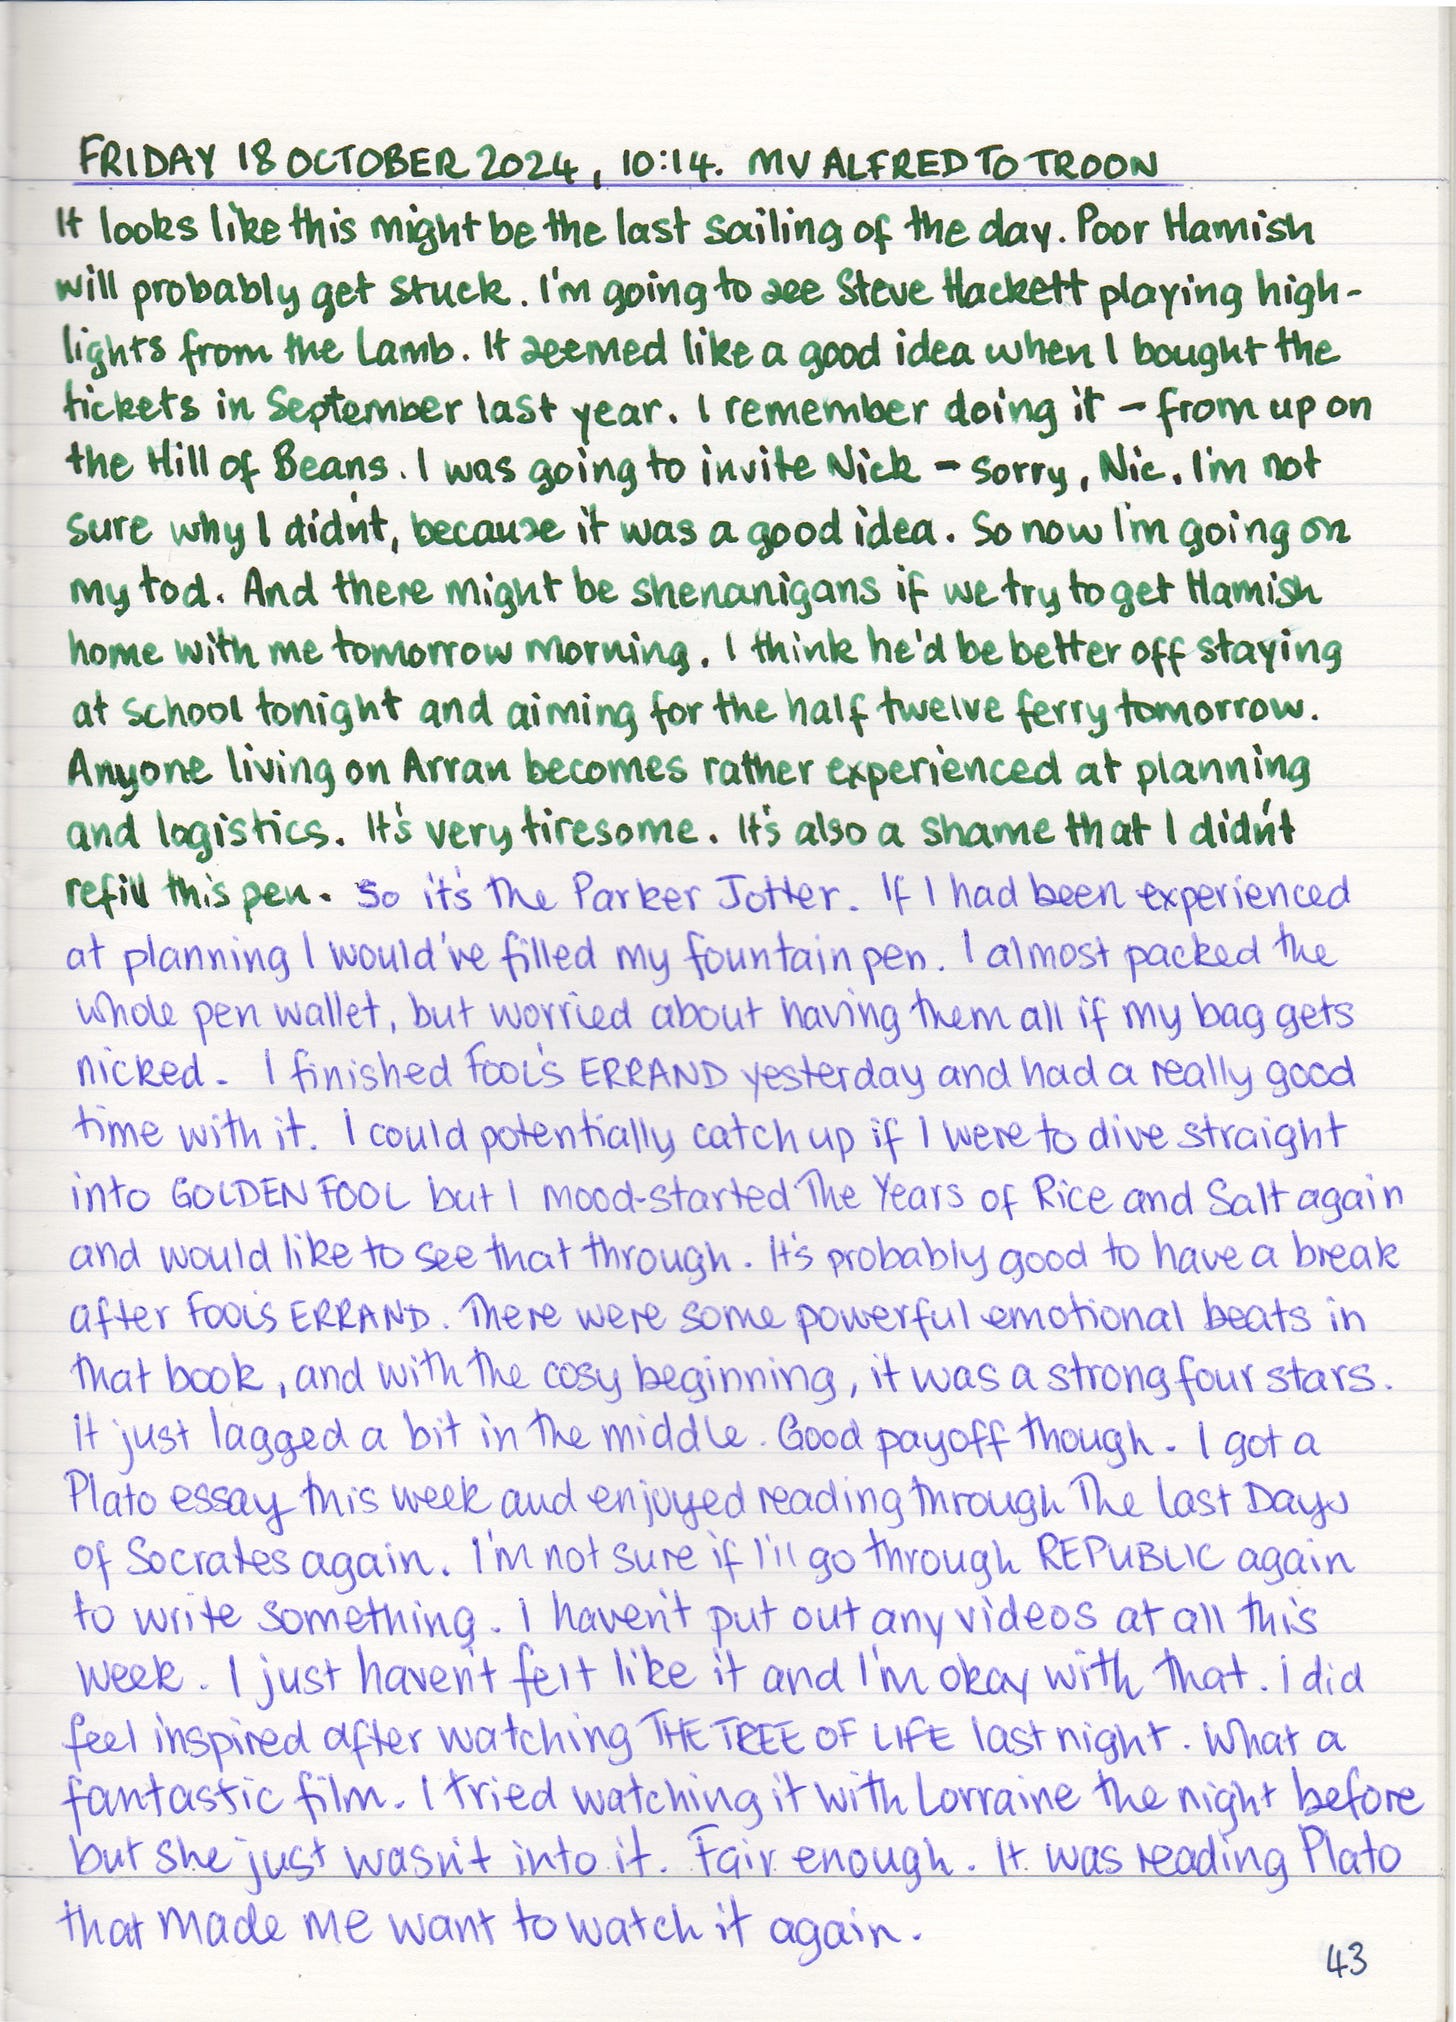 FRIDAY 18 OCTOBER 2024, 10:14. MV ALFRED TO TROON
It looks like this might be the last sailing of the day. Poor Hamish
will probably get stuck. I'm going to see Steve Hackett playing high-
lights from the Lamb. It seemed like a good idea when I bought the
tickets in September last year. I remember doing it – from up on
the Hill of Beans. I was going to invite Nick – sorry, Nic. I'm not
sure why I didn't, because it was a good idea. So now I'm going on
my tod. And there might be shenanigans if we try to get Hamish
home with me tomorrow morning. I think he'd be better off staying
at school tonight and aiming for the half twelve ferry tomorrow.
Anyone living on Arran becomes rather experienced at planning
and logistics. It's very tiresome. It's also a shame that I didn't
refill this pen. So it's the Parker Jotter. If I had been experienced
at planning I would've filled my fountain pen. I almost packed the
whole pen wallet, but worried about having them all if my bag gets
nicked. I finished FOOL'S ERRAND yesterday and had a really good
time with it. I could potentially catch up if I were to dive straight
into GOLDEN FOOL but I mood-started The Years of Rice and Salt again
and would like to see that through. It's probably good to have a break
after FOOL'S ERRAND. There were some powerful emotional beats in
that book, and with the cosy beginning, it was a strong four stars.
It just lagged a bit in the middle. Good payoff though. I got a
Plato essay this week and enjoyed reading through The Last Days
of Socrates again. I'm not sure if I'll go through REPUBLIC again
to write something. I haven't put out any videos at all this
week. I just haven't felt like it and I'm okay with that. I did
feel inspired after watching THE TREE OF LIFE last night. What a
fantastic film. I tried watching it with Lorraine the night before
but she just wasn't into it. Fair enough. It was reading Plato
that made me want to watch it again.
43